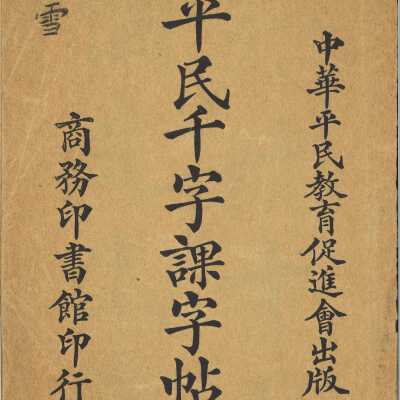 中華平民教育促進會出版
平民千字課字帖
雪
商務印書館印行